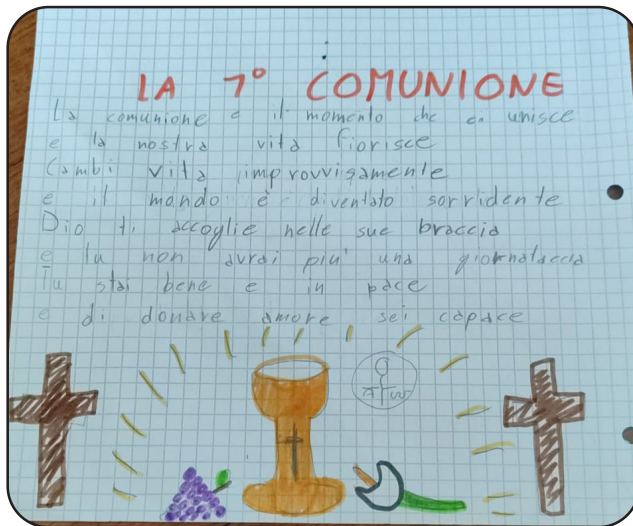 LA 1° COMUNIONE
La comunione è il momento che ci unisce
e la nostra vita fiorisce
Cambi vita improvvisamente
e il mondo è diventato sorridente
Dio ti accoglie nelle sue braccia
e tu non avrai più una giornataccia
Tu stai bene e in pace
e di donare amore sei capace